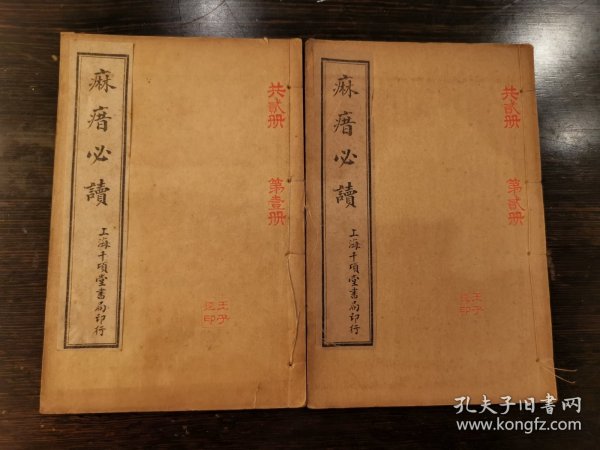 麻瘄必讀
上海千頃堂書局印行
共贰册
第壹册
王子
印
麻瘄必讀
上海千頃堂書局印行
共贰册
第贰册
王子
印
孔夫子旧书网
www.kongfz.com